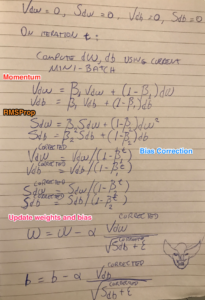 Vdw = 0, Sdw = 0. Vdb = 0, Sdb = 0.
ON ITERATION t:
COMPUTE dW, db USING CURRENT
MINI-BATCH
Momentum
Vdw = β₁ Vdw + (1-β₁) dW
Vdb = β₁ Vdb + (1-β₁) db
RMSProp
Sdw = β₂ Sdw + (1-β₂) dw²
Sdb = β₂ Sdb + (1-β₂) db²
Bias Correction
Vdw^CORRECTED = Vdw/(1-β₁^t)
Vdb^CORRECTED = Vdb/(1-β₁^t)
Sdw^CORRECTED = Sdw/(1-β₂^t)
Sdb^CORRECTED = Sdb/(1-β₂^t)
Update weights and bias
W = W - α Vdw^CORRECTED / √Sdw^CORRECTED + ε
b = b - α Vdb^CORRECTED / √Sdb^CORRECTED + ε